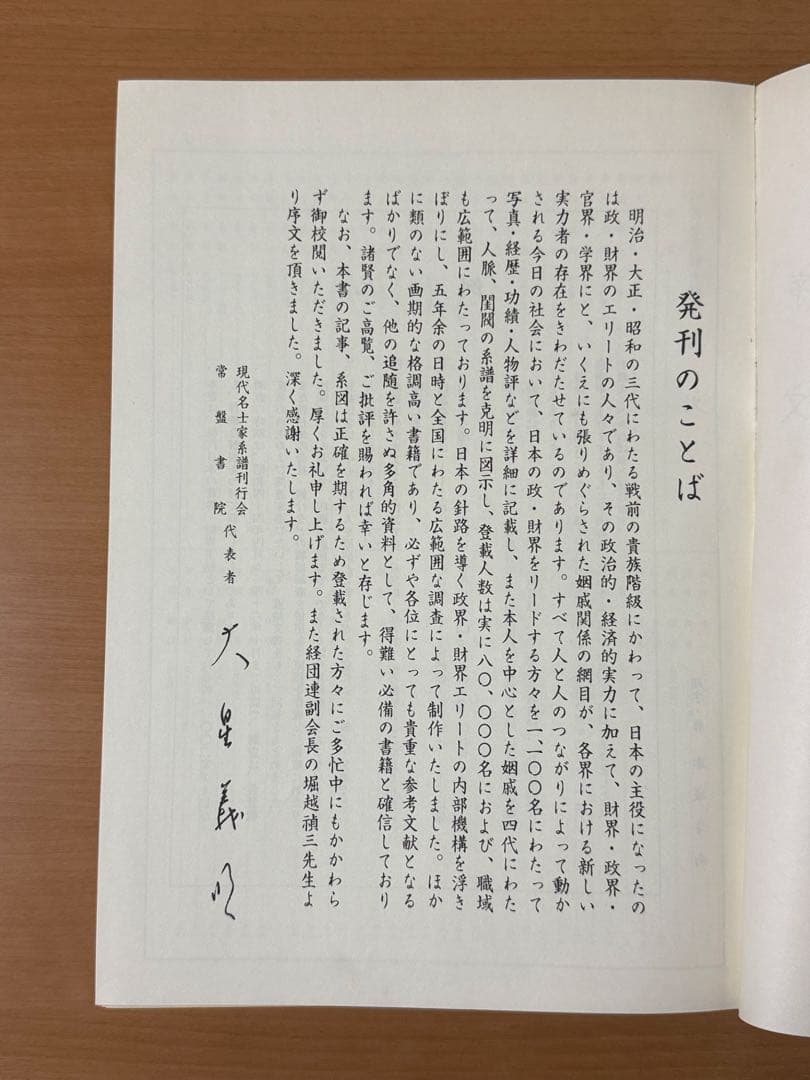 発刊のことば
明治・大正・昭和の三代にわたる戦前の貴族階級にかわって、日本の主役になったの
は政・財界のエリートの人々であり、その政治的・経済的実力に加えて、財界・政界・
官界・学界にと、いくえにも張りめぐらされた姻戚関係の網目が、各界における新しい
実力者の存在をきわだたせているのであります。すべて人と人のつながりによって動か
される今日の社会において、日本の政・財界をリードする方々を一、一〇〇名にわたって
写真・経歴・功績・人物評などを詳細に記載し、また本人を中心とした姻戚を四代にわた
って、人脈、閨閥の系譜を克明に図示し、登載人数は実に八〇、〇〇〇名におよび、職域
も広範囲にわたっております。日本の針路を導く政界・財界エリートの内部機構を浮き
ぼりにし、五年余の日時と全国にわたる広範囲な調査によって制作いたしました。ほか
に類のない画期的な格調高い書籍であり、必ずや各位にとっても貴重な参考文献となる
ばかりでなく、他の追随を許さぬ多角的資料として、得難い必備の書籍と確信しており
ます。諸賢のご高覧、ご批評を賜われば幸いと存じます。
なお、本書の記事、系図は正確を期するため登載された方々にご多忙中にもかかわら
ず御校閲いただきました。厚くお礼申し上げます。また経団連副会長の堀越禎三先生よ
り序文を頂きました。深く感謝いたします。
現代名士家系譜刊行会
常盤書院
代表者 大星義明